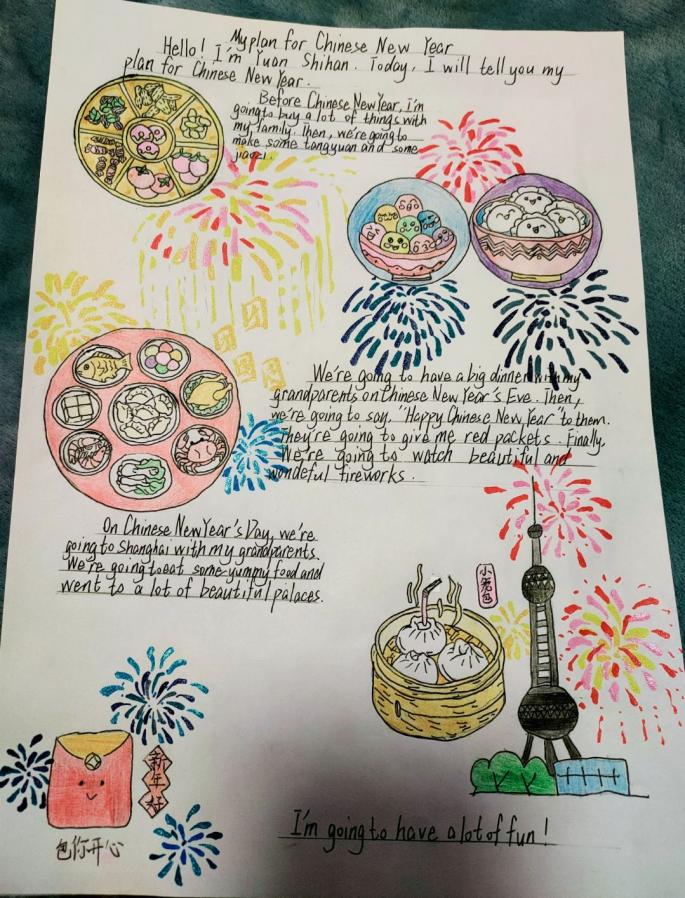 My plan for Chinese New Year
Hello! I'm Yuan Shihan. Today, I will tell you my
plan for Chinese New Year.
Before Chinese New Year, I'm
going to buy a lot of things with
my family. Then, we're going to
make some tangyuan and some
jiaozi.
We're going to have a big dinner with my
grandparents on Chinese New Year's Eve. Then,
we're going to say, "Happy Chinese New Year" to them.
They're going to give me red packets. Finally,
We're going to watch beautiful and
wondeful fireworks.
On Chinese New Year's Day, we're
going to Shanghai with my grandparents.
We're going to eat some yummy food and
went to a lot of beautiful palaces.
小笼包
新年好
包你开心
I'm going to have a lot of fun!